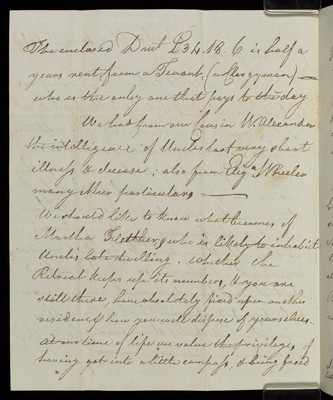 The enclosed Draft £34.18.6 is half a
years rent from a Tenant, (a Clergyman) —
who is the only one that pays to the day
We had from our Cousin W. Alexander
the intelligence of Uncles last very short
illness & decease; also from Eliz. J Wheeler
many other particulars —
We should like to know what becomes of
Martha & who is likely to inhabit
Uncles late dwelling. Whether the
Retreat keeps up its numbers, & you are
still there, have absolutely fixed upon another
residence & how you will dispose of yourselves.
At our time of life we value the privilege of
having got into a little compass, & being freed